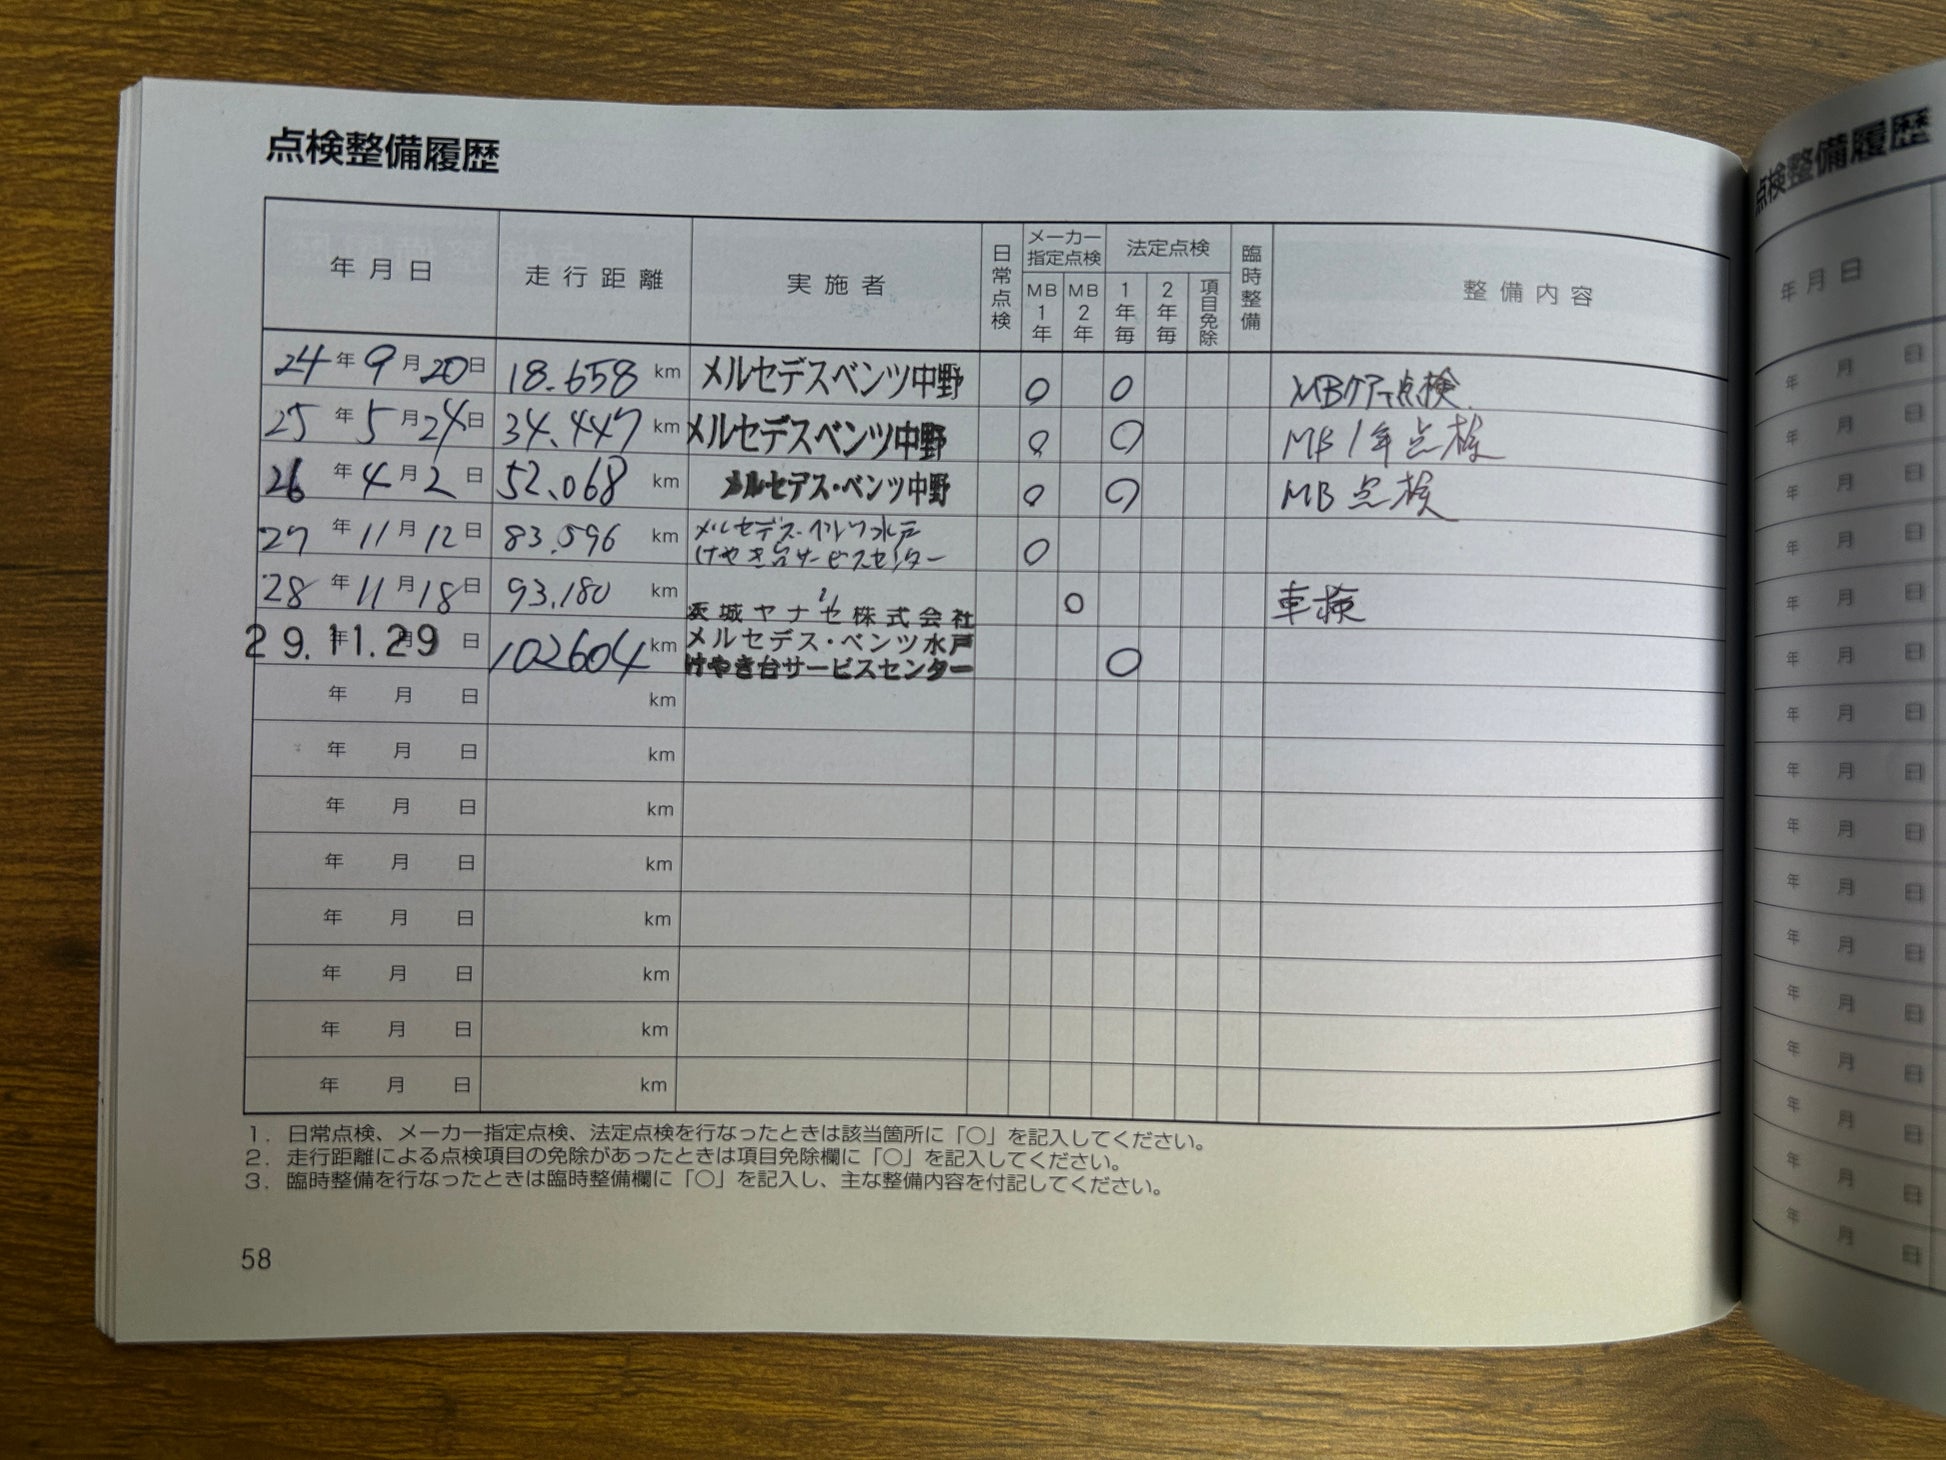 点検整備履歴
年月日 走行距離 実施者 日常点検 メーカー指定点検 MB1年 MB2年 法定点検 1年毎 2年毎 項目免除 臨時整備 整備内容
24年9月20日 18.658 km メルセデスベンツ中野 ○ ○ MBケアー点検
25年5月24日 34.447 km メルセデスベンツ中野 ○ ○ MB1年点検
26年4月2日 52.068 km メルセデス・ベンツ中野 ○ ○ MB点検
27年11月12日 83.596 km メルセデス・ベンツ水戸
けやき台サービスセンター ○
28年11月18日 93.180 km 〃 ○ 車検
29.11.29 年 月 日 102604 km 茨城ヤナセ株式会社
メルセデス・ベンツ水戸
けやき台サービスセンター ○
年 月 日 km
年 月 日 km
年 月 日 km
年 月 日 km
年 月 日 km
年 月 日 km
年 月 日 km
年 月 日 km
1. 日常点検、メーカー指定点検、法定点検を行なったときは該当箇所に「○」を記入してください。
2. 走行距離による点検項目の免除があったときは項目免除欄に「○」を記入してください。
3. 臨時整備を行なったときは臨時整備欄に「○」を記入し、主な整備内容を付記してください。
58
点検整備履歴
年月日
年 月 日
年 月 日
年 月 日
年 月 日
年 月 日
年 月 日
年 月 日
年 月 日
年 月 日
年 月 日
年 月 日
年 月 日
年 月 日
年 月 日
年 月 日
年 月 日